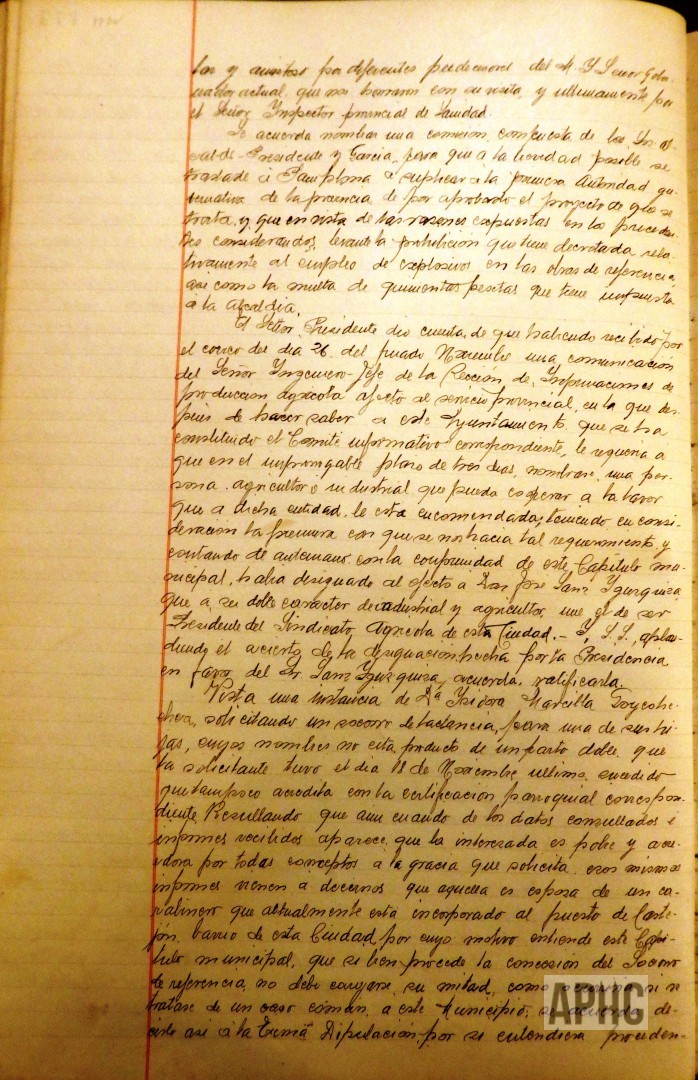 los y auntoso por diferentes predecesores del M. Y. Señor Gober-
nador actual, que nos honraron con su visita, y ultimamente por
el Señor Inspector provincial de Sanidad.
Se acuerda nombrar una comision, compuesta de los Sres. Al-
calde-Presidente y Garcia, para que a la brevedad posible se
traslade á Pamplona á suplicar a la primera Autoridad gu-
bernativa de la provincia de por aprobado el proyecto de que se
trata, y que en vista de las razones expuestas en los preceden-
tes considerandos, levante la prohibicion que tiene decretada rela-
tivamente al empleo de explosivos en las obras de referencia,
asi como la multa de quinientas pesetas que tiene impuesta
á la Alcaldia.
El Señor Presidente dio cuenta de que habiendo recibido por
el correo del dia 26 del pasado Noviembre una comunicación
del Señor Ingeniero-Jefe de la Sección de Informaciones de
produccion agricola afecto al servicio provincial, en la que des-
pues de hacer saber a este Ayuntamiento que se ha
constituido el Comité informativo correspondiente, le requeria a
que en el improrrogable plazo de tres dias, nombrase una per-
sona agricultor o industrial que pueda cooperar a la labor
que a dicha entidad le esta encomendada; teniendo en consi-
deracion la premura con que se nos hacia tal requerimiento y
contando de antemano con la conformidad de este Capitulo mu-
nicipal, habia designado al efecto a Don José Sanz Yzurquiza
que a su doble caracter de industrial y agricultor, une el de ser
Presidente del Sindicato Agricola de esta Ciudad.- Y, S.S., aplau-
diendo el acierto de la designacion hecha por la Presidencia
en favor del Sr. Sanz Yzurquiza, acuerda, ratificarla.
Vista una instancia de Dª Ysidora Marcilla Goycoche-
chea, solicitando un socorro de lactancia, para una de sus hi-
jas, cuyos nombres no cita, producto de un parto doble que
la solicitante tuvo el dia 18 de Noviembre ultimo, sucedido
que tampoco acredita con la certificacion parroquial correspon-
diente. Resultando que aun cuando de los datos consultados e
informes recibidos aparece que la interesada es pobre y acre-
edora por todos conceptos a la gracia que solicita, esos mismos
informes vienen a decirnos que aquella es esposa de un ca-
rabinero que actualmente está incorporado al puesto de Caste-
jón, barrio de esta Ciudad, por cuyo motivo entiende este Capi-
tulo municipal, que si bien procede la concesion del Socorro
de referencia, no debe cargarse su mitad, como ocurriria si se
tratase de un caso común, a este Municipio, se acuerda de-
cirle asi a la Excmª Diputación, por si entendiera proceden-
APHG